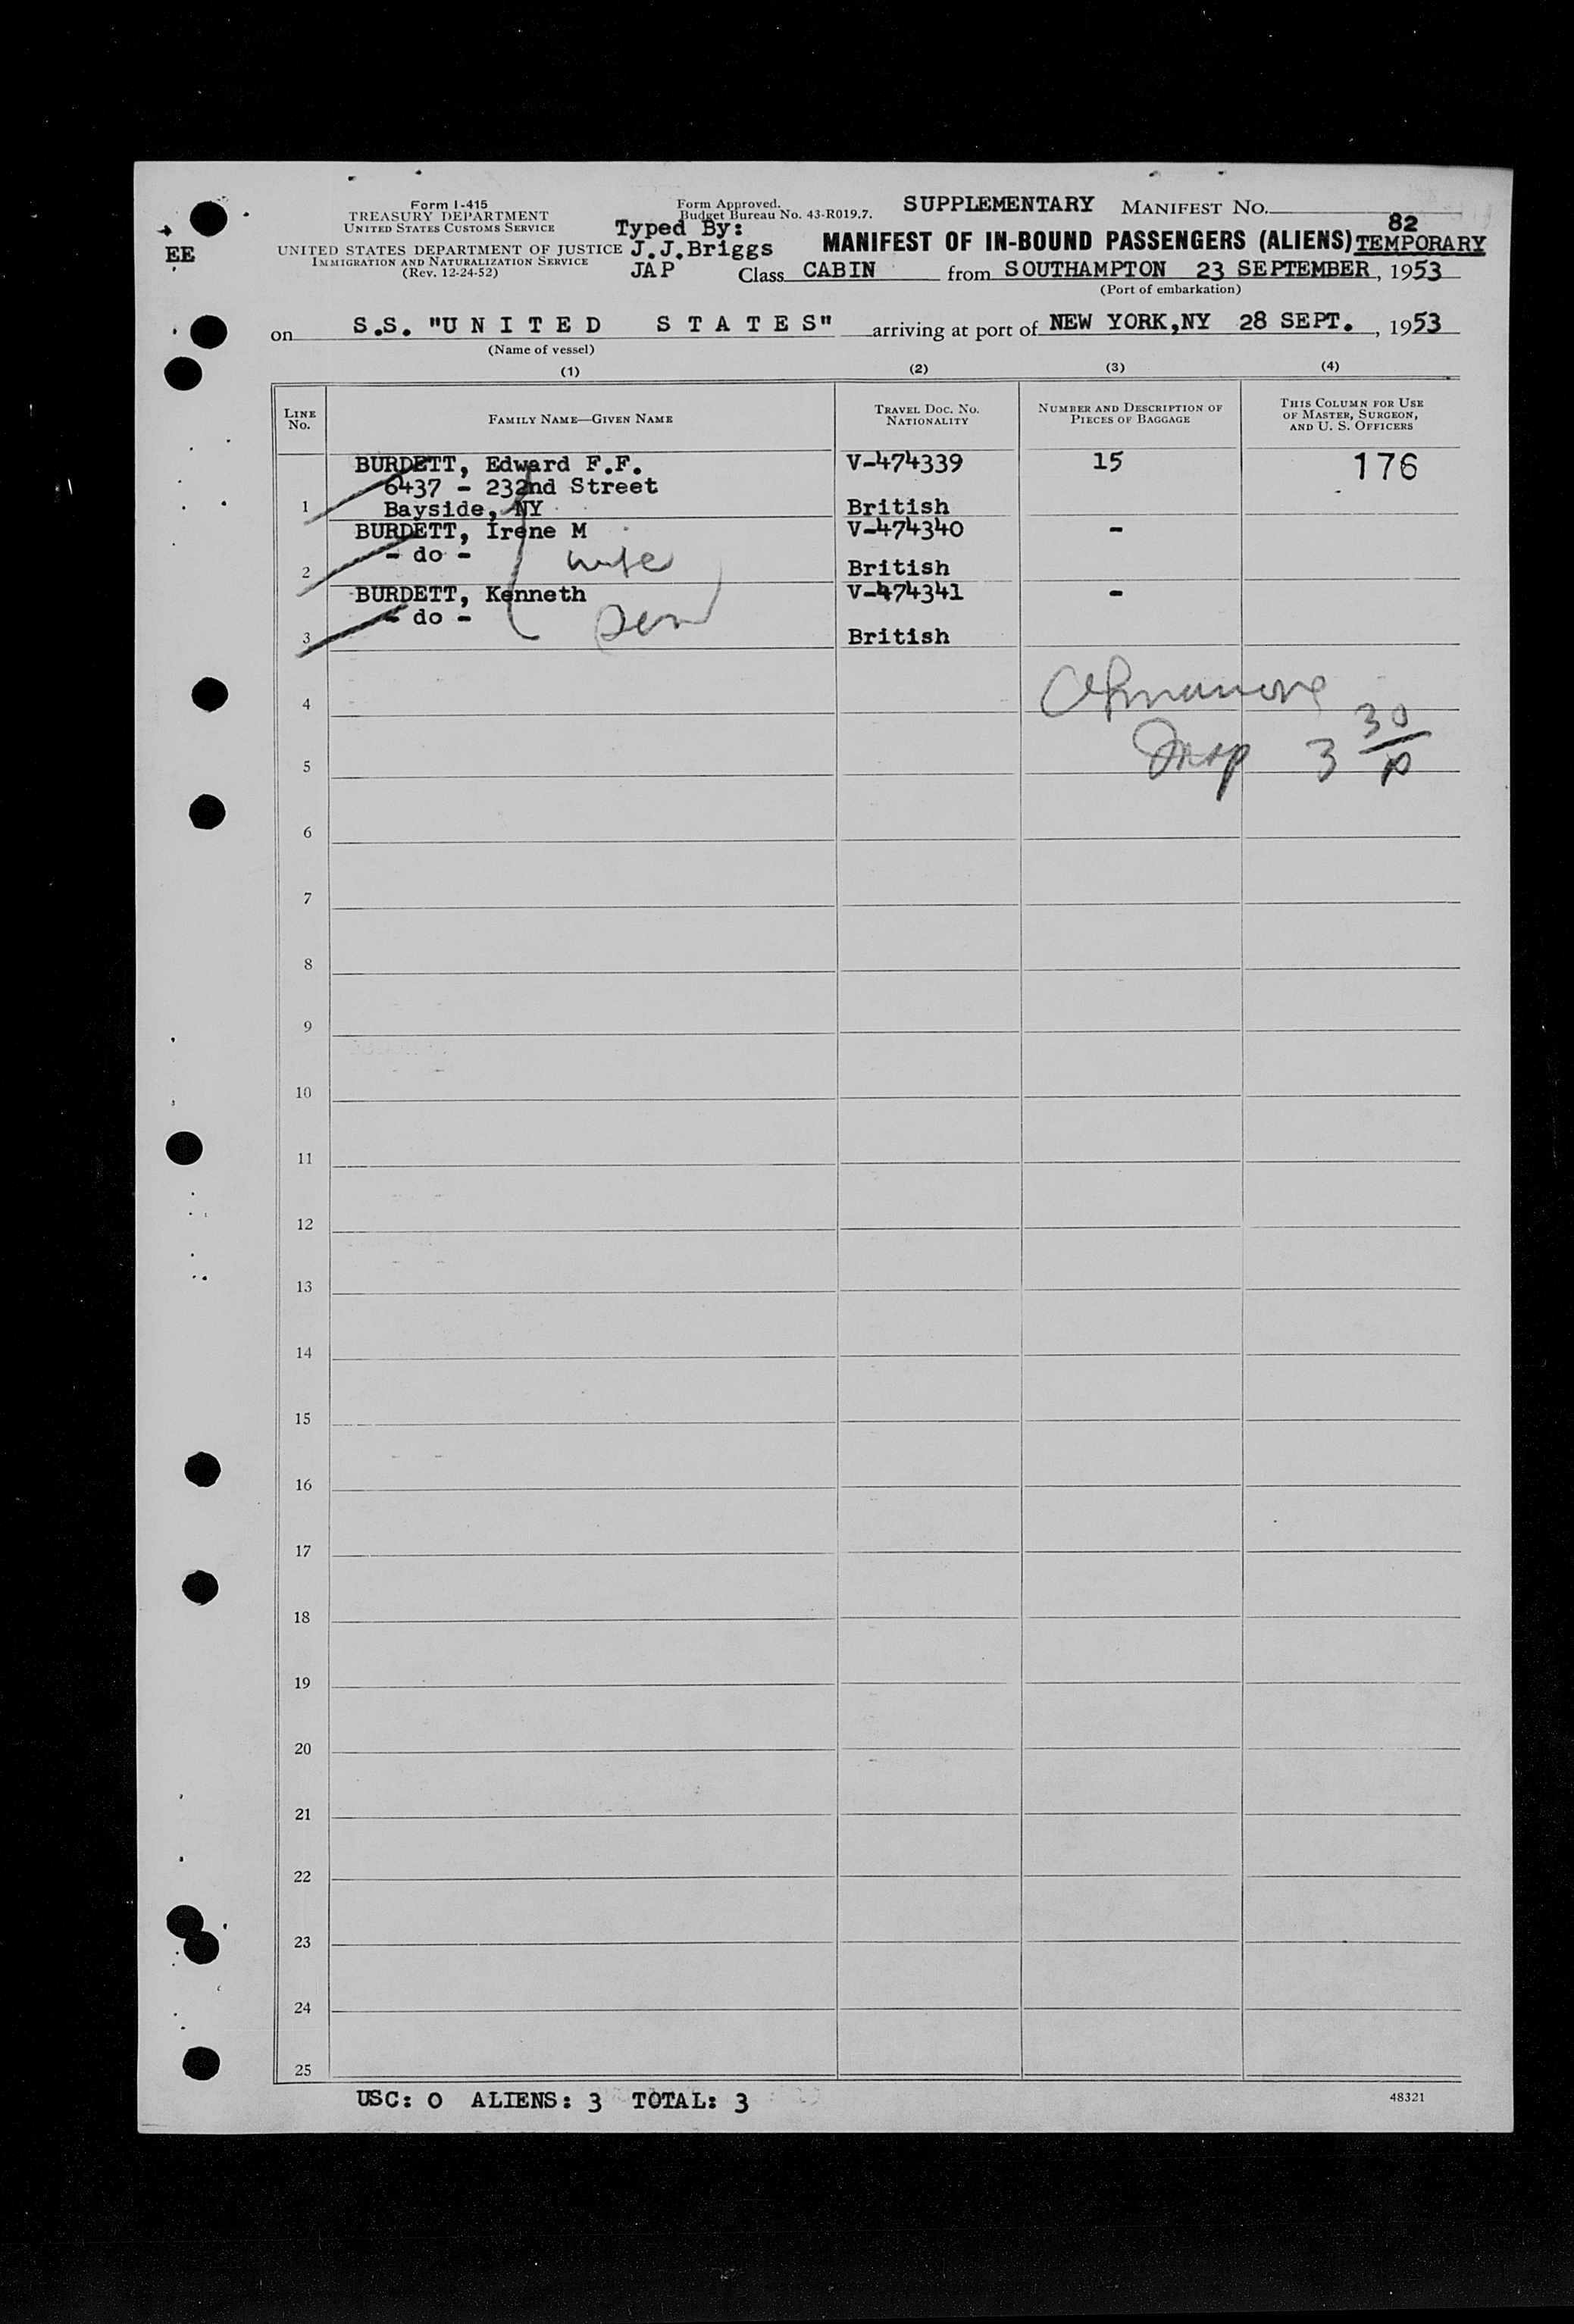 Form I-415
TREASURY DEPARTMENT
UNITED STATES CUSTOMS SERVICE
UNITED STATES DEPARTMENT OF JUSTICE
IMMIGRATION AND NATURALIZATION SERVICE
(Rev. 12-24-52)
EE
Form Approved.
Budget Bureau No. 43-R019.7.
Typed By:
J.J.Briggs
JAP
SUPPLEMENTARY MANIFEST NO.
82
MANIFEST OF IN-BOUND PASSENGERS (ALIENS) TEMPORARY
Class CABIN from SOUTHAMPTON 23 SEPTEMBER, 1953
(Port of embarkation)
on S.S. "U N I T E D S T A T E S" arriving at port of NEW YORK,NY 28 SEPT. , 1953
(Name of vessel)
(1) (2) (3) (4)
LINE NO. FAMILY NAME—GIVEN NAME TRAVEL DOC. NO. NATIONALITY NUMBER AND DESCRIPTION OF PIECES OF BAGGAGE THIS COLUMN FOR USE OF MASTER, SURGEON, AND U. S. OFFICERS
BURDETT, Edward F.F. V-474339 15 176
6437 - 232nd Street
1 Bayside, NY British
BURDETT, Irene M V-474340 -
- do - wife
2 British
BURDETT, Kenneth V-474341 -
- do - son
3 British
4
5 Insp 3 30/p
6
7
8
9
10
11
12
13
14
15
16
17
18
19
20
21
22
23
24
25
USC: 0 ALIENS: 3 TOTAL: 3
48321